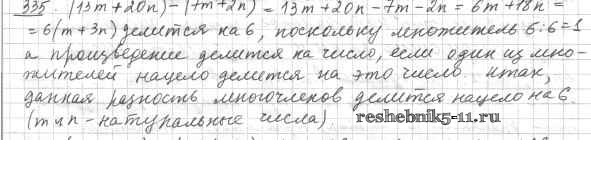 335. (13m + 20n) - (7m + 2n) = 13m + 20n - 7m - 2n = 6m + 18n =
= 6(m + 3n) делится на 6, поскольку множитель 6:6=1
а произведение делится на число, если один из мно-
жителей нацело делится на это число. Итак,
данная разность многочленов делится нацело на 6.
(m и n - натуральные числа).
reshebnik5-11.ru